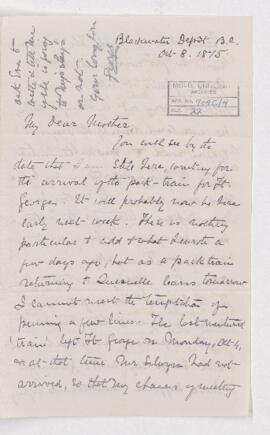 Blackwater Depot B.C.
Oct. 8. 1875
ask Eva to
write & tell me
if she is going
to
or not.
Your loving son
George
McGILL UNIVERSITY
ARCHIVES
ACC. NO.
REF. 22
My Dear Mother,
You will see by the
date that I am still here, waiting for
the arrival of the pack-train from Ft
George. It will probably now be here
early next week. There is nothing
particular to add to what I wrote a
few days ago, but as a pack train
returning to Quesnelle leaves tomorrow
I cannot resist the temptation of
penning a few lines. The last
'train' left Ft George on Monday, Oct 4,
as at that time Mr Selwyn had not
arrived, so that my chances of meeting